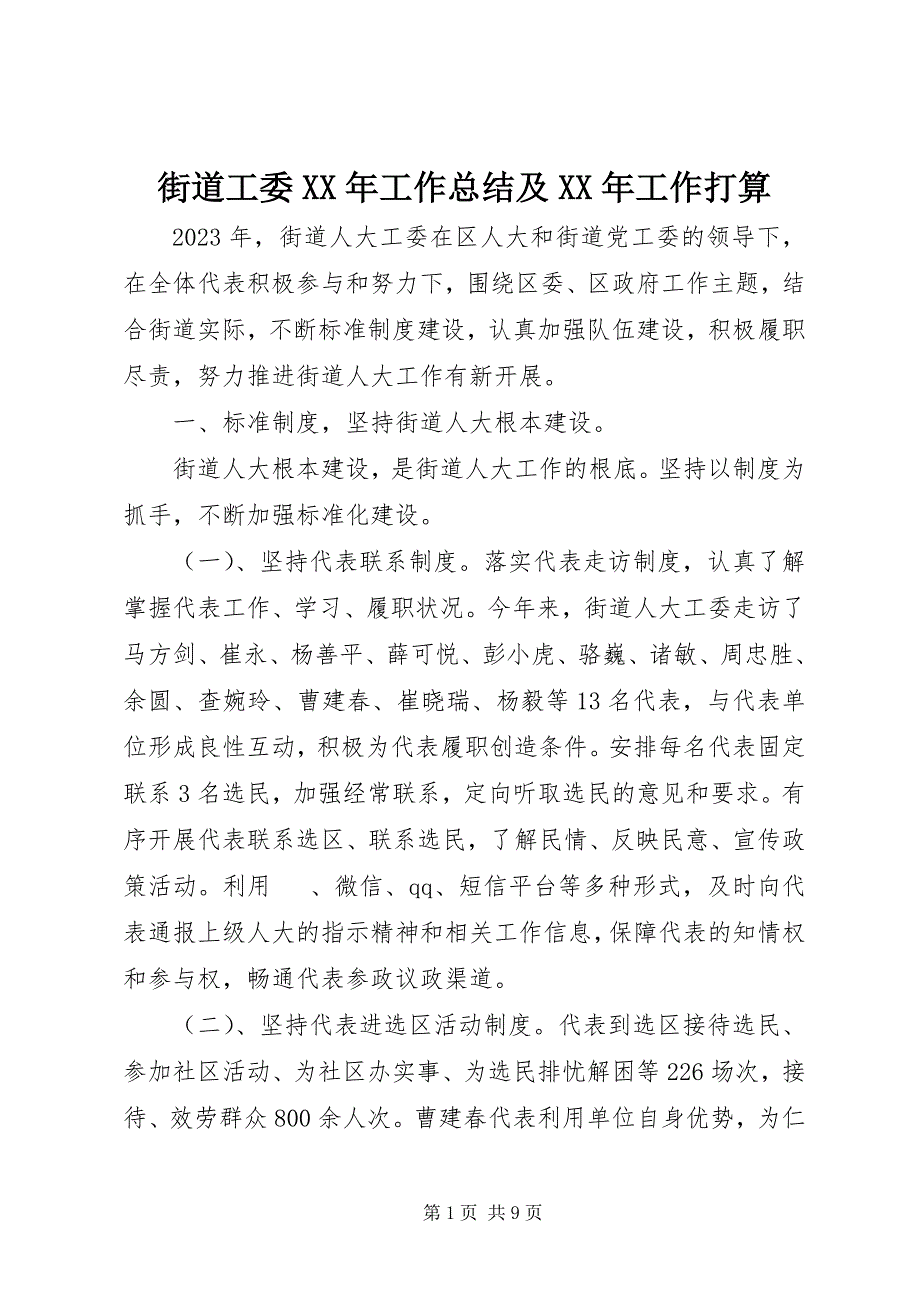 街道工委 XX 年工作总结及 XX 年工作打算
2023 年，街道人大工委在区人大和街道党工委的领导下，
在全体代表积极参与和努力下，围绕区委、区政府工作主题，结
合街道实际，不断标准制度建设，认真加强队伍建设，积极履职
尽责，努力推进街道人大工作有新开展。
一、标准制度，坚持街道人大根本建设。
街道人大根本建设，是街道人大工作的根底。坚持以制度为
抓手，不断加强标准化建设。
（一）、坚持代表联系制度。落实代表走访制度，认真了解
掌握代表工作、学习、履职状况。今年来，街道人大工委走访了
马方剑、崔永、杨善平、薛可悦、彭小虎、骆巍、诸敏、周忠胜、
余圆、查婉玲、曹建春、崔晓瑞、杨毅等 13 名代表，与代表单
位形成良性互动，积极为代表履职创造条件。安排每名代表固定
联系 3 名选民，加强经常联系，定向听取选民的意见和要求。有
序开展代表联系选区、联系选民，了解民情、反映民意、宣传政
策活动。利用 、微信、qq、短信平台等多种形式，及时向代
表通报上级人大的指示精神和相关工作信息，保障代表的知情权
和参与权，畅通代表参政议政渠道。
（二）、坚持代表进选区活动制度。代表到选区接待选民、
参加社区活动、为社区办实事、为选民排忧解困等 226 场次，接
待、效劳群众 800 余人次。曹建春代表利用单位自身优势，为仁
第 1 页 共 9 页